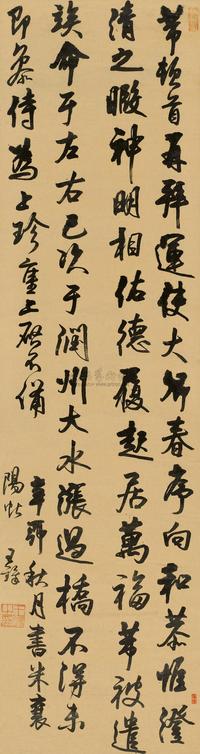 芾頓首再拜運使大郎春序向和恭惟澄
清之暇神明相佑德履起居萬福芾被遣
竢命于左右已次于潤州大水漲過橋不得未
即參侍為上珍重上啓不備
辛卯秋月書米襄
陽帖